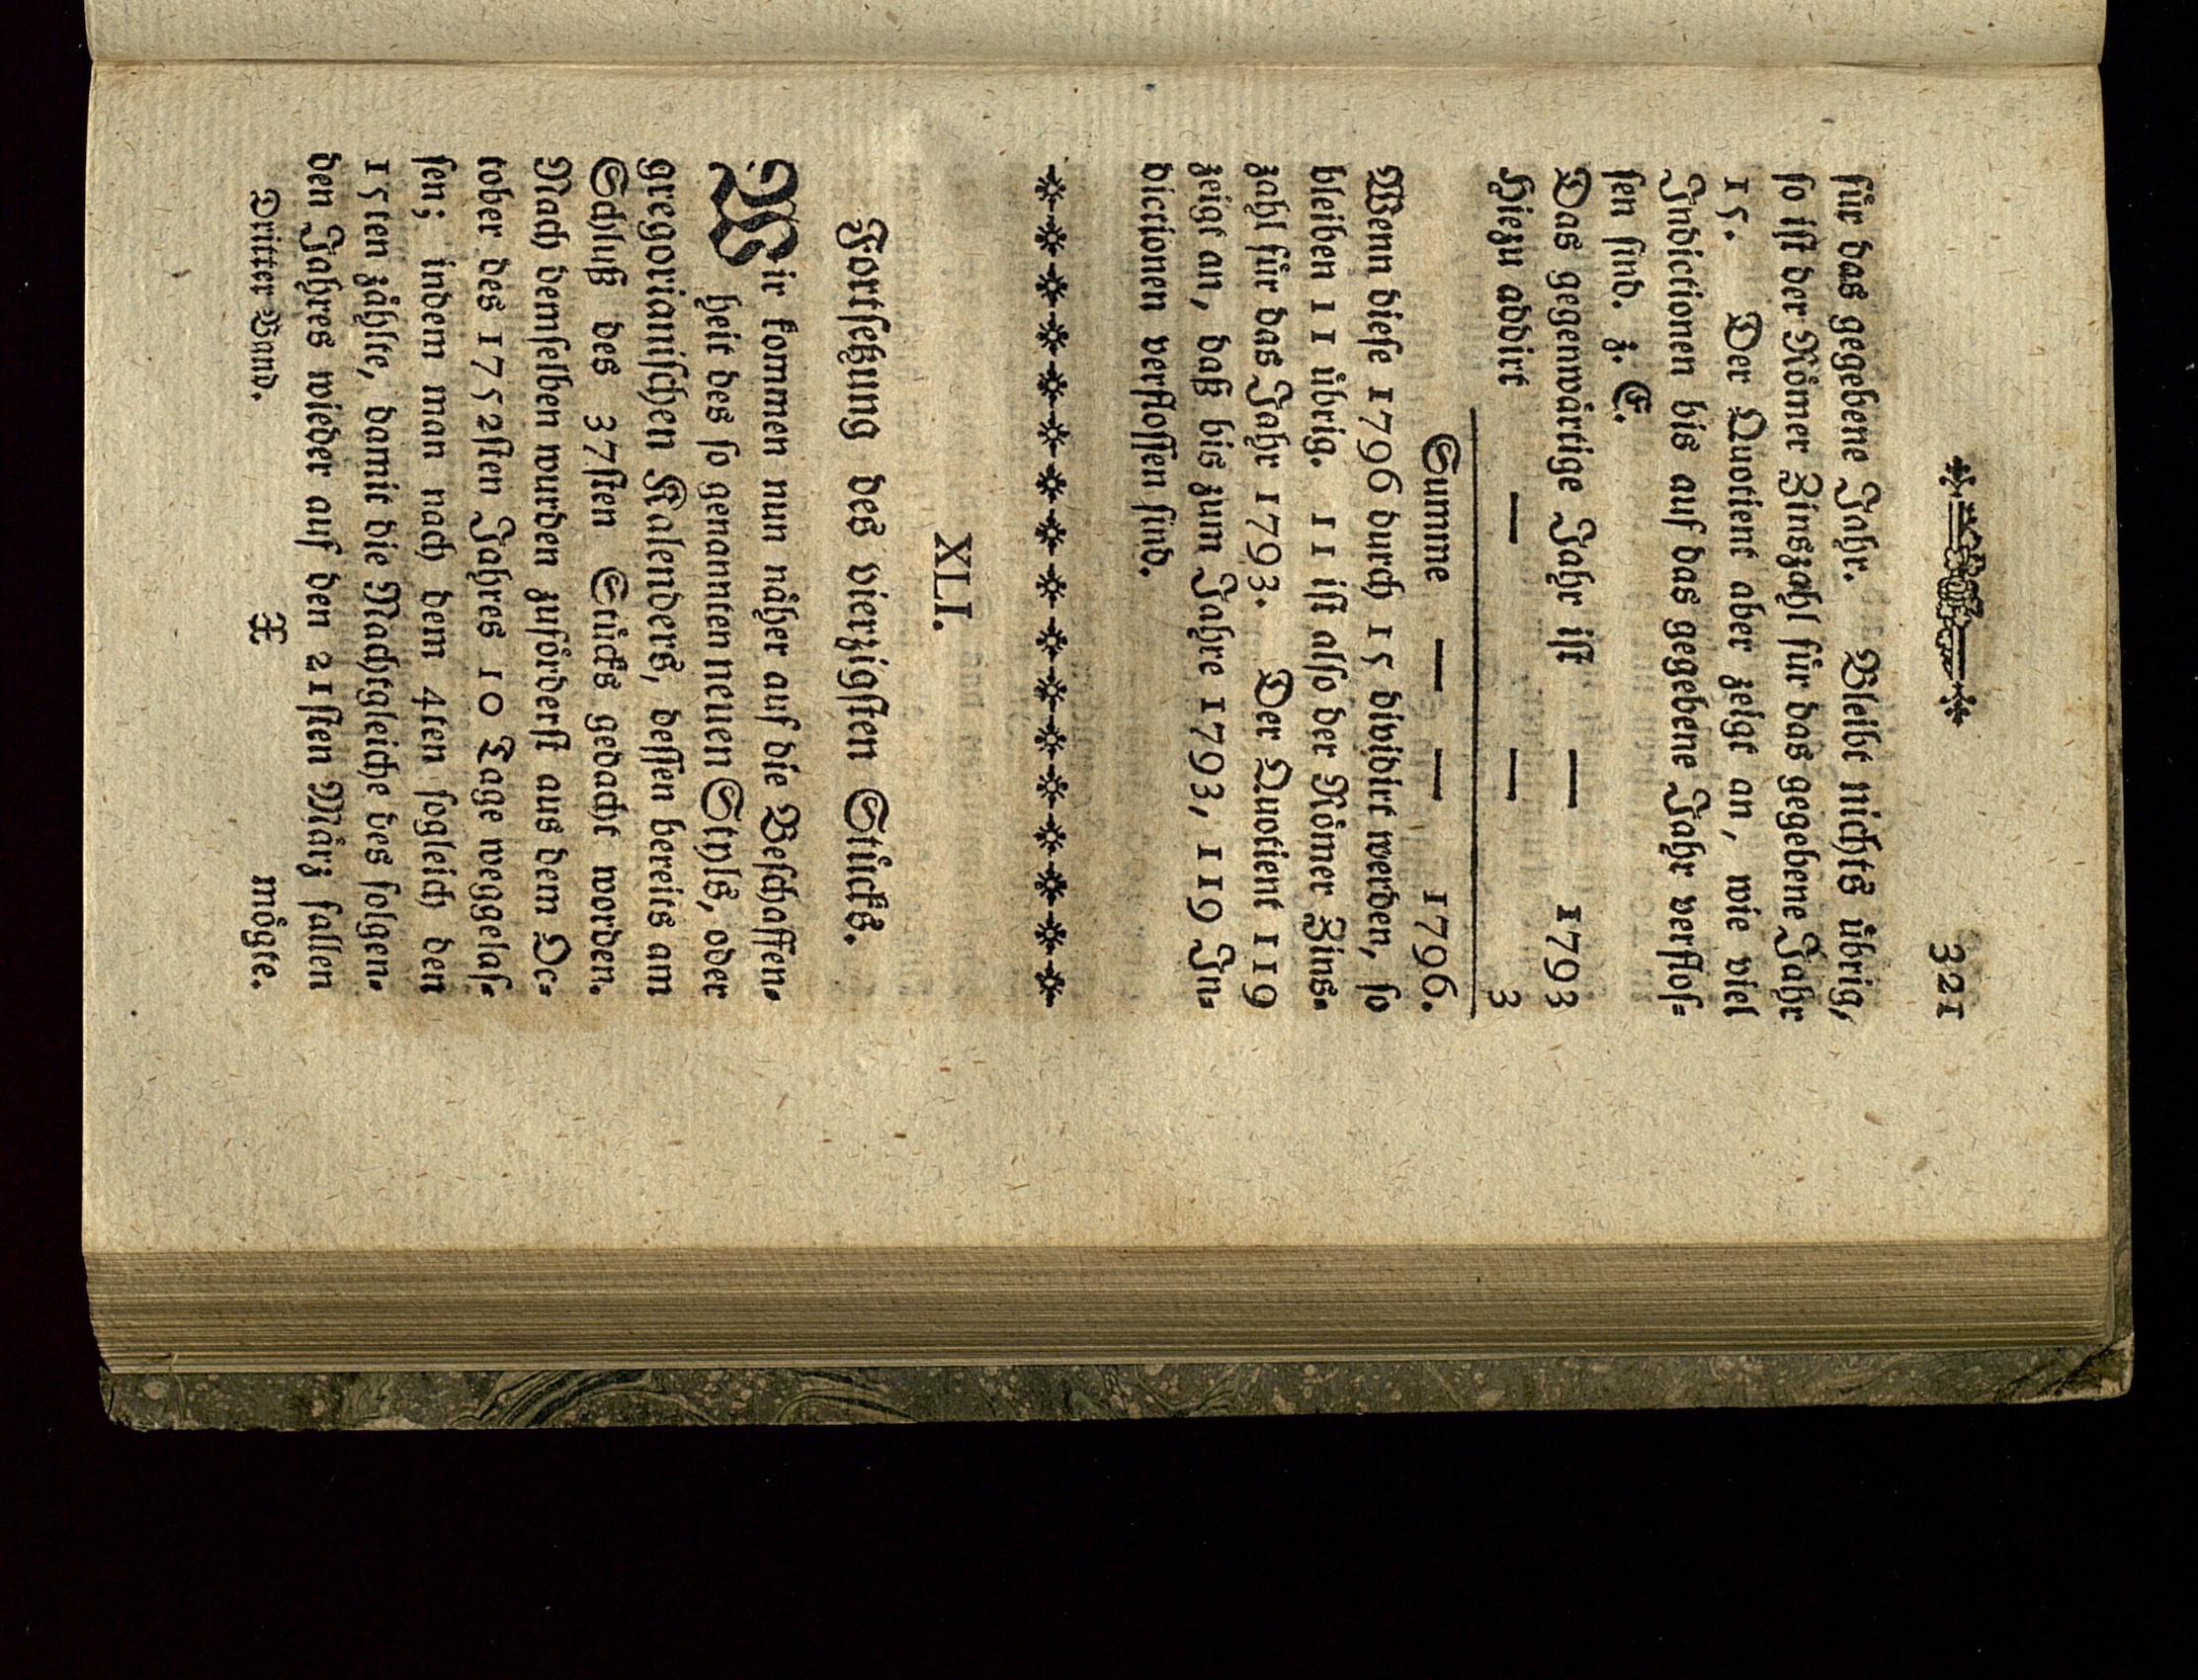 321
für das gegebene Jahr. Bleibt nichts übrig,
so ist der Römer Zinszahl für das gegebene Jahr
15. Der Quotient aber zeigt an, wie viel
Indictionen bis auf das gegebene Jahr verflos-
sen sind. z. E.
Das gegenwärtige Jahr ist — 1793
Hiezu addirt — — 3
Summe — — 1796.
Wenn diese 1796 durch 15 dividirt werden, so
bleiben 11 übrig. 11 ist also der Römer Zins-
zahl für das Jahr 1793. Der Quotient 119
zeigt an, daß bis zum Jahre 1793, 119 In-
dictionen verflossen sind.
XLI.
Fortsetzung des vierzigsten Stücks.
Wir kommen nun näher auf die Beschaffen-
heit des so genannten neuen Styls, oder
gregorianischen Kalenders, dessen bereits am
Schluß des 37sten Stücks gedacht worden.
Nach demselben wurden zuförderst aus dem Oc-
tober des 1752sten Jahres 10 Tage weggelas-
sen; indem man nach dem 4ten sogleich den
15ten zählte, damit die Nachtgleiche des folgen-
den Jahres wieder auf den 21sten März fallen
Dritter Band. X mögte.